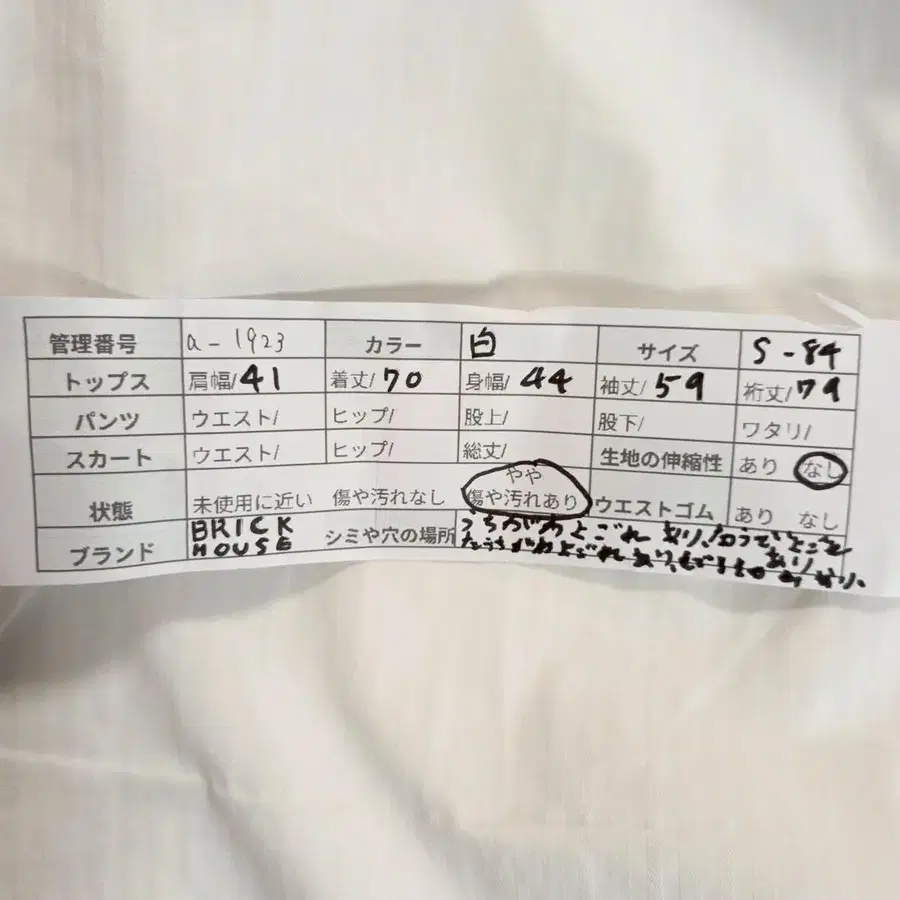 管理番号 a-1923 カラー 白 サイズ S-84
トップス 肩幅/41 着丈/70 身幅/44 袖丈/59 裄丈/79
パンツ ウエスト/ ヒップ/ 股上/ 股下/ ワタリ/
スカート ウエスト/ ヒップ/ 総丈/ 生地の伸縮性 あり なし
状態 未使用に近い 傷や汚れなし やや傷や汚れあり ウエストゴム あり なし
ブランド BRICK HOUSE シミや穴の場所